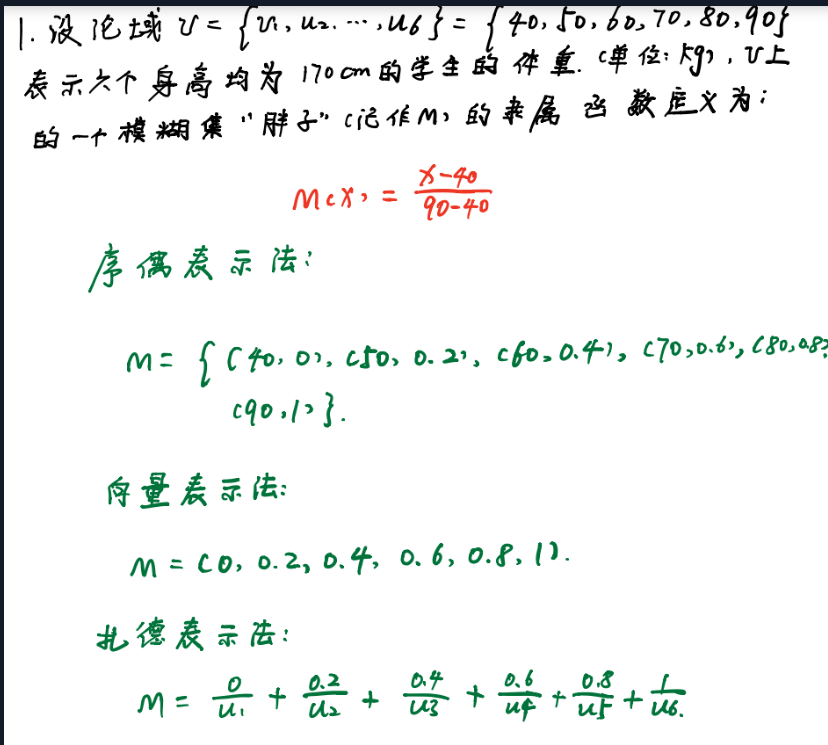 1. 设论域 U = {u₁, u₂. ⋯, u6} = {40, 50, 60, 70, 80, 90}
表示六个身高均为 170cm的学生的体重. (单位: kg), U上
的一个模糊集 "胖子" (记作M) 的隶属函数定义为:
M(X) = \frac{X-40}{90-40}
序偶表示法:
M = {(40, 0), (50, 0.2), (60, 0.4), (70, 0.6), (80, 0.8),
(90, 1)}.
向量表示法:
M = (0, 0.2, 0.4, 0.6, 0.8, 1).
扎德表示法:
M = \frac{0}{u₁} + \frac{0.2}{u₂} + \frac{0.4}{u3} + \frac{0.6}{u4} + \frac{0.8}{u5} + \frac{1}{u6}.